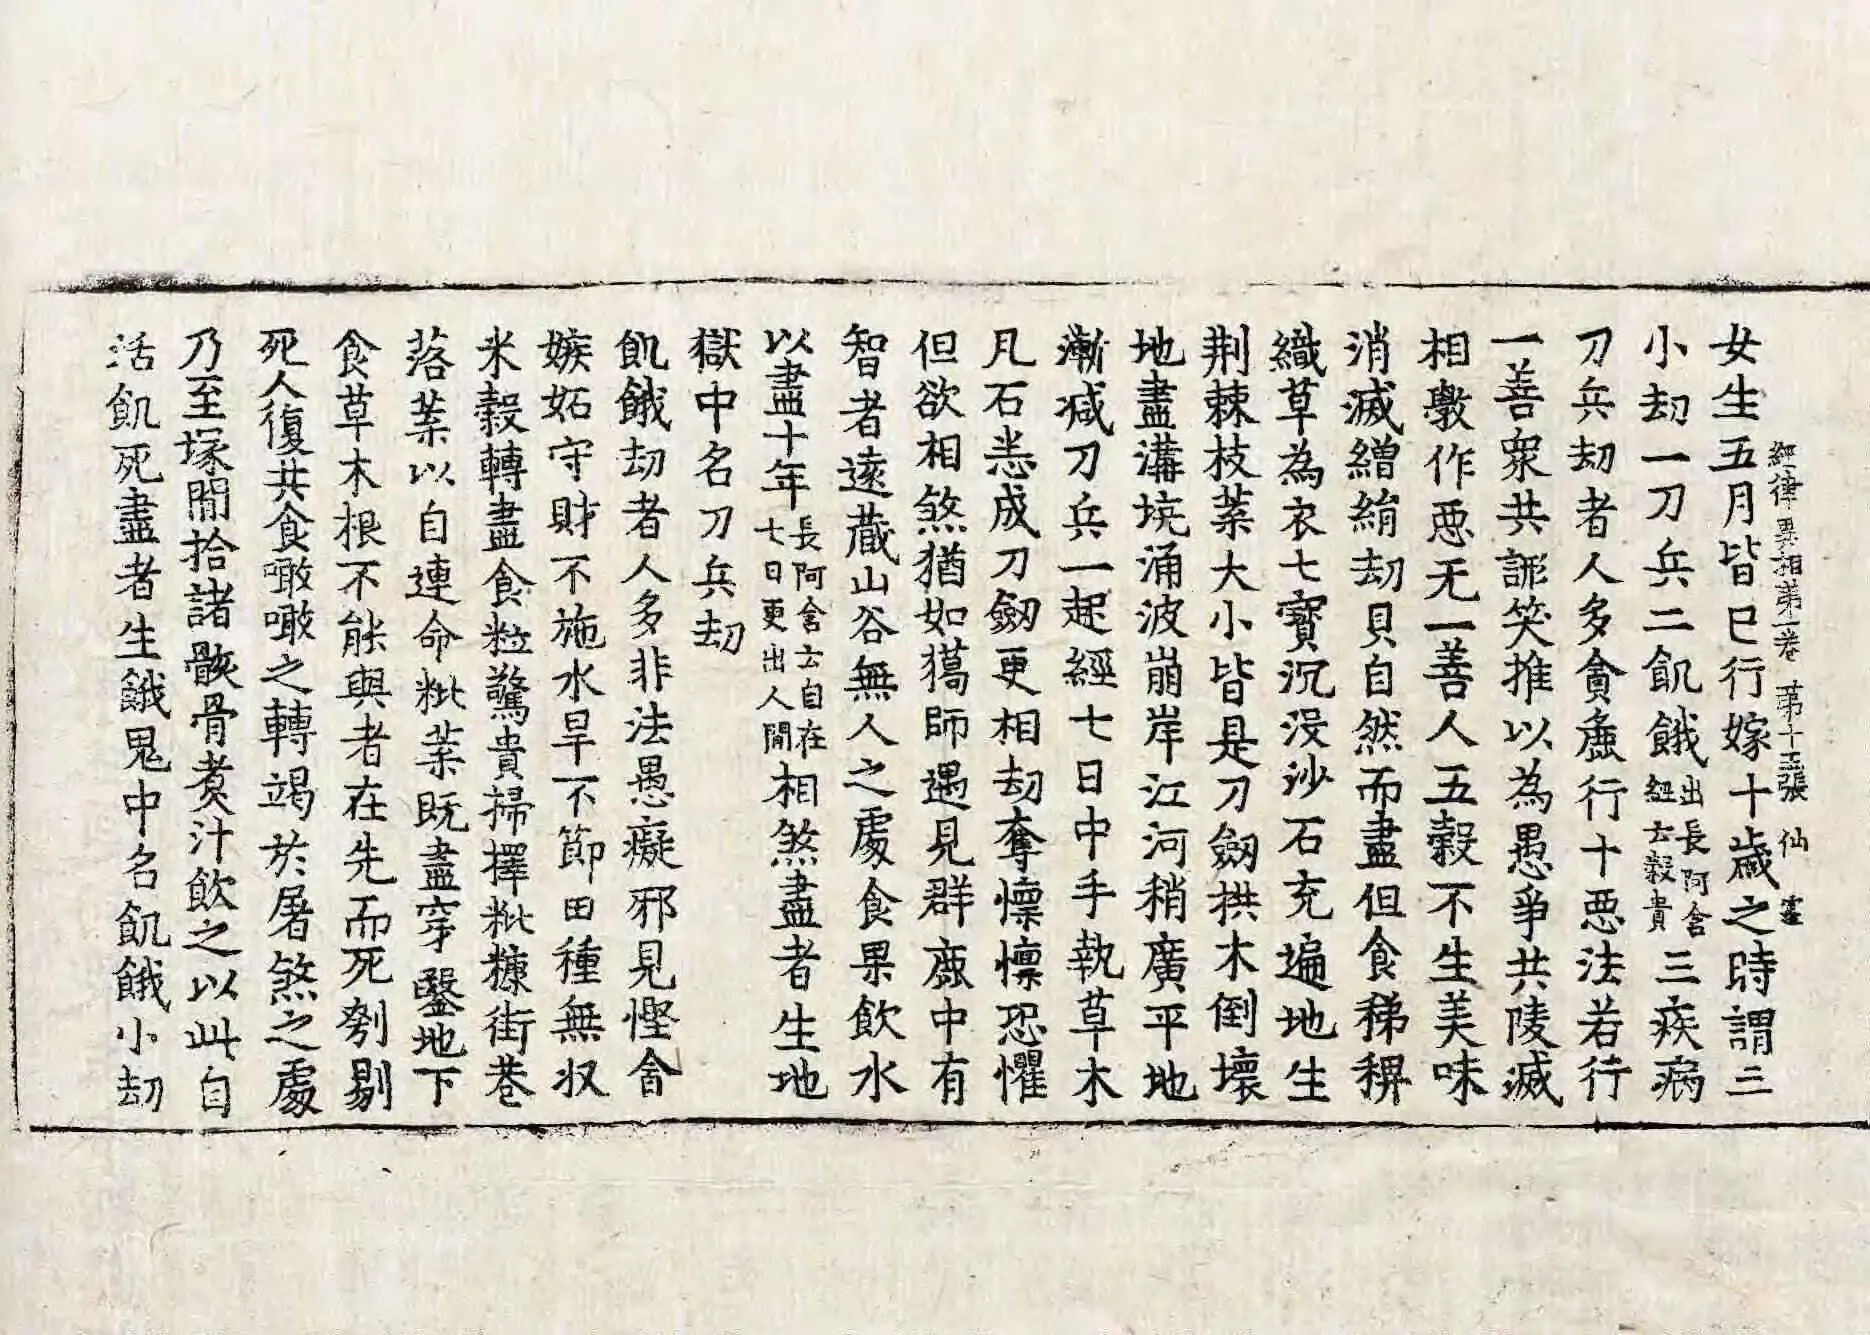 經律異相第一卷 第十三張 仙 靈
女生五月皆已行嫁十歲之時謂三
小劫一刀兵二飢餓出長阿含經云穀貴三疾病
刀兵劫者人多貪麁行十惡法若行
一善衆共誹笑推以為愚爭共陵滅
相斅作惡无一善人五穀不生美味
消滅繒絹劫貝自然而盡但食稊稗
織草為衣七寶沉没沙石充遍地生
荆棘枝葉大小皆是刀劒拱木倒壞
地盡溝坑涌波崩岸江河稍廣平地
漸減刀兵一起經七日中手執草木
凡石悉成刀劒更相劫奪懍懍恐懼
但欲相煞猶如獦師遇見群鹿中有
智者遠藏山谷無人之處食果飲水
以盡十年長阿含云自在七日更出人閒相煞盡者生地
獄中名刀兵劫
飢餓劫者人多非法愚癡邪見慳舍
嫉妬守財不施水旱不節田種無収
米穀轉盡食粒驚貴掃擇粃糠街巷
落葉以自連命粃葉既盡穿鑿地下
食草木根不能與者在先而死刳剔
死人復共食噉噉之轉竭於屠煞之處
乃至塚閒拾諸骸骨煮汁飲之以此自
活飢死盡者生餓鬼中名飢餓小劫